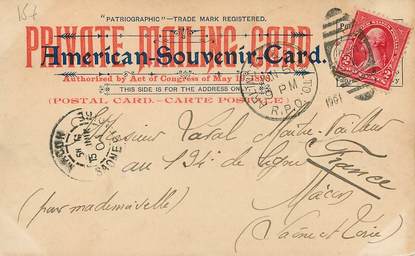 15f
"PATRIOGRAPHIC"—TRADE MARK REGISTERED.
PRIVATE MAILING CARD
American-Souvenir-Card.
Authorized by Act of Congress of May 19, 1898.
THIS SIDE IS FOR THE ADDRESS ONLY
(POSTAL CARD.—CARTE POSTALE.)
R.P.O.
1901
MACON
Monsieur Vatal Maître-Tailleur
au 134 de Ligne
France
(par mademoiselle) Mâcon
(Saône et Loire)